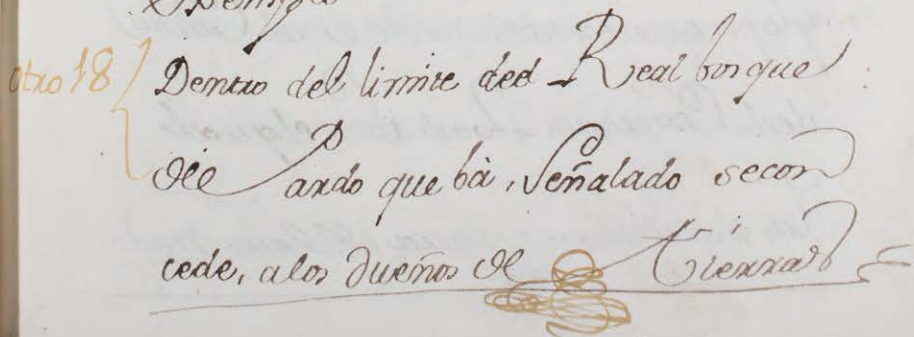 Otro 18
Dentro del limite del Real bosque
de Pardo que bà, Señalado secon
cede, alos dueños de Tierras